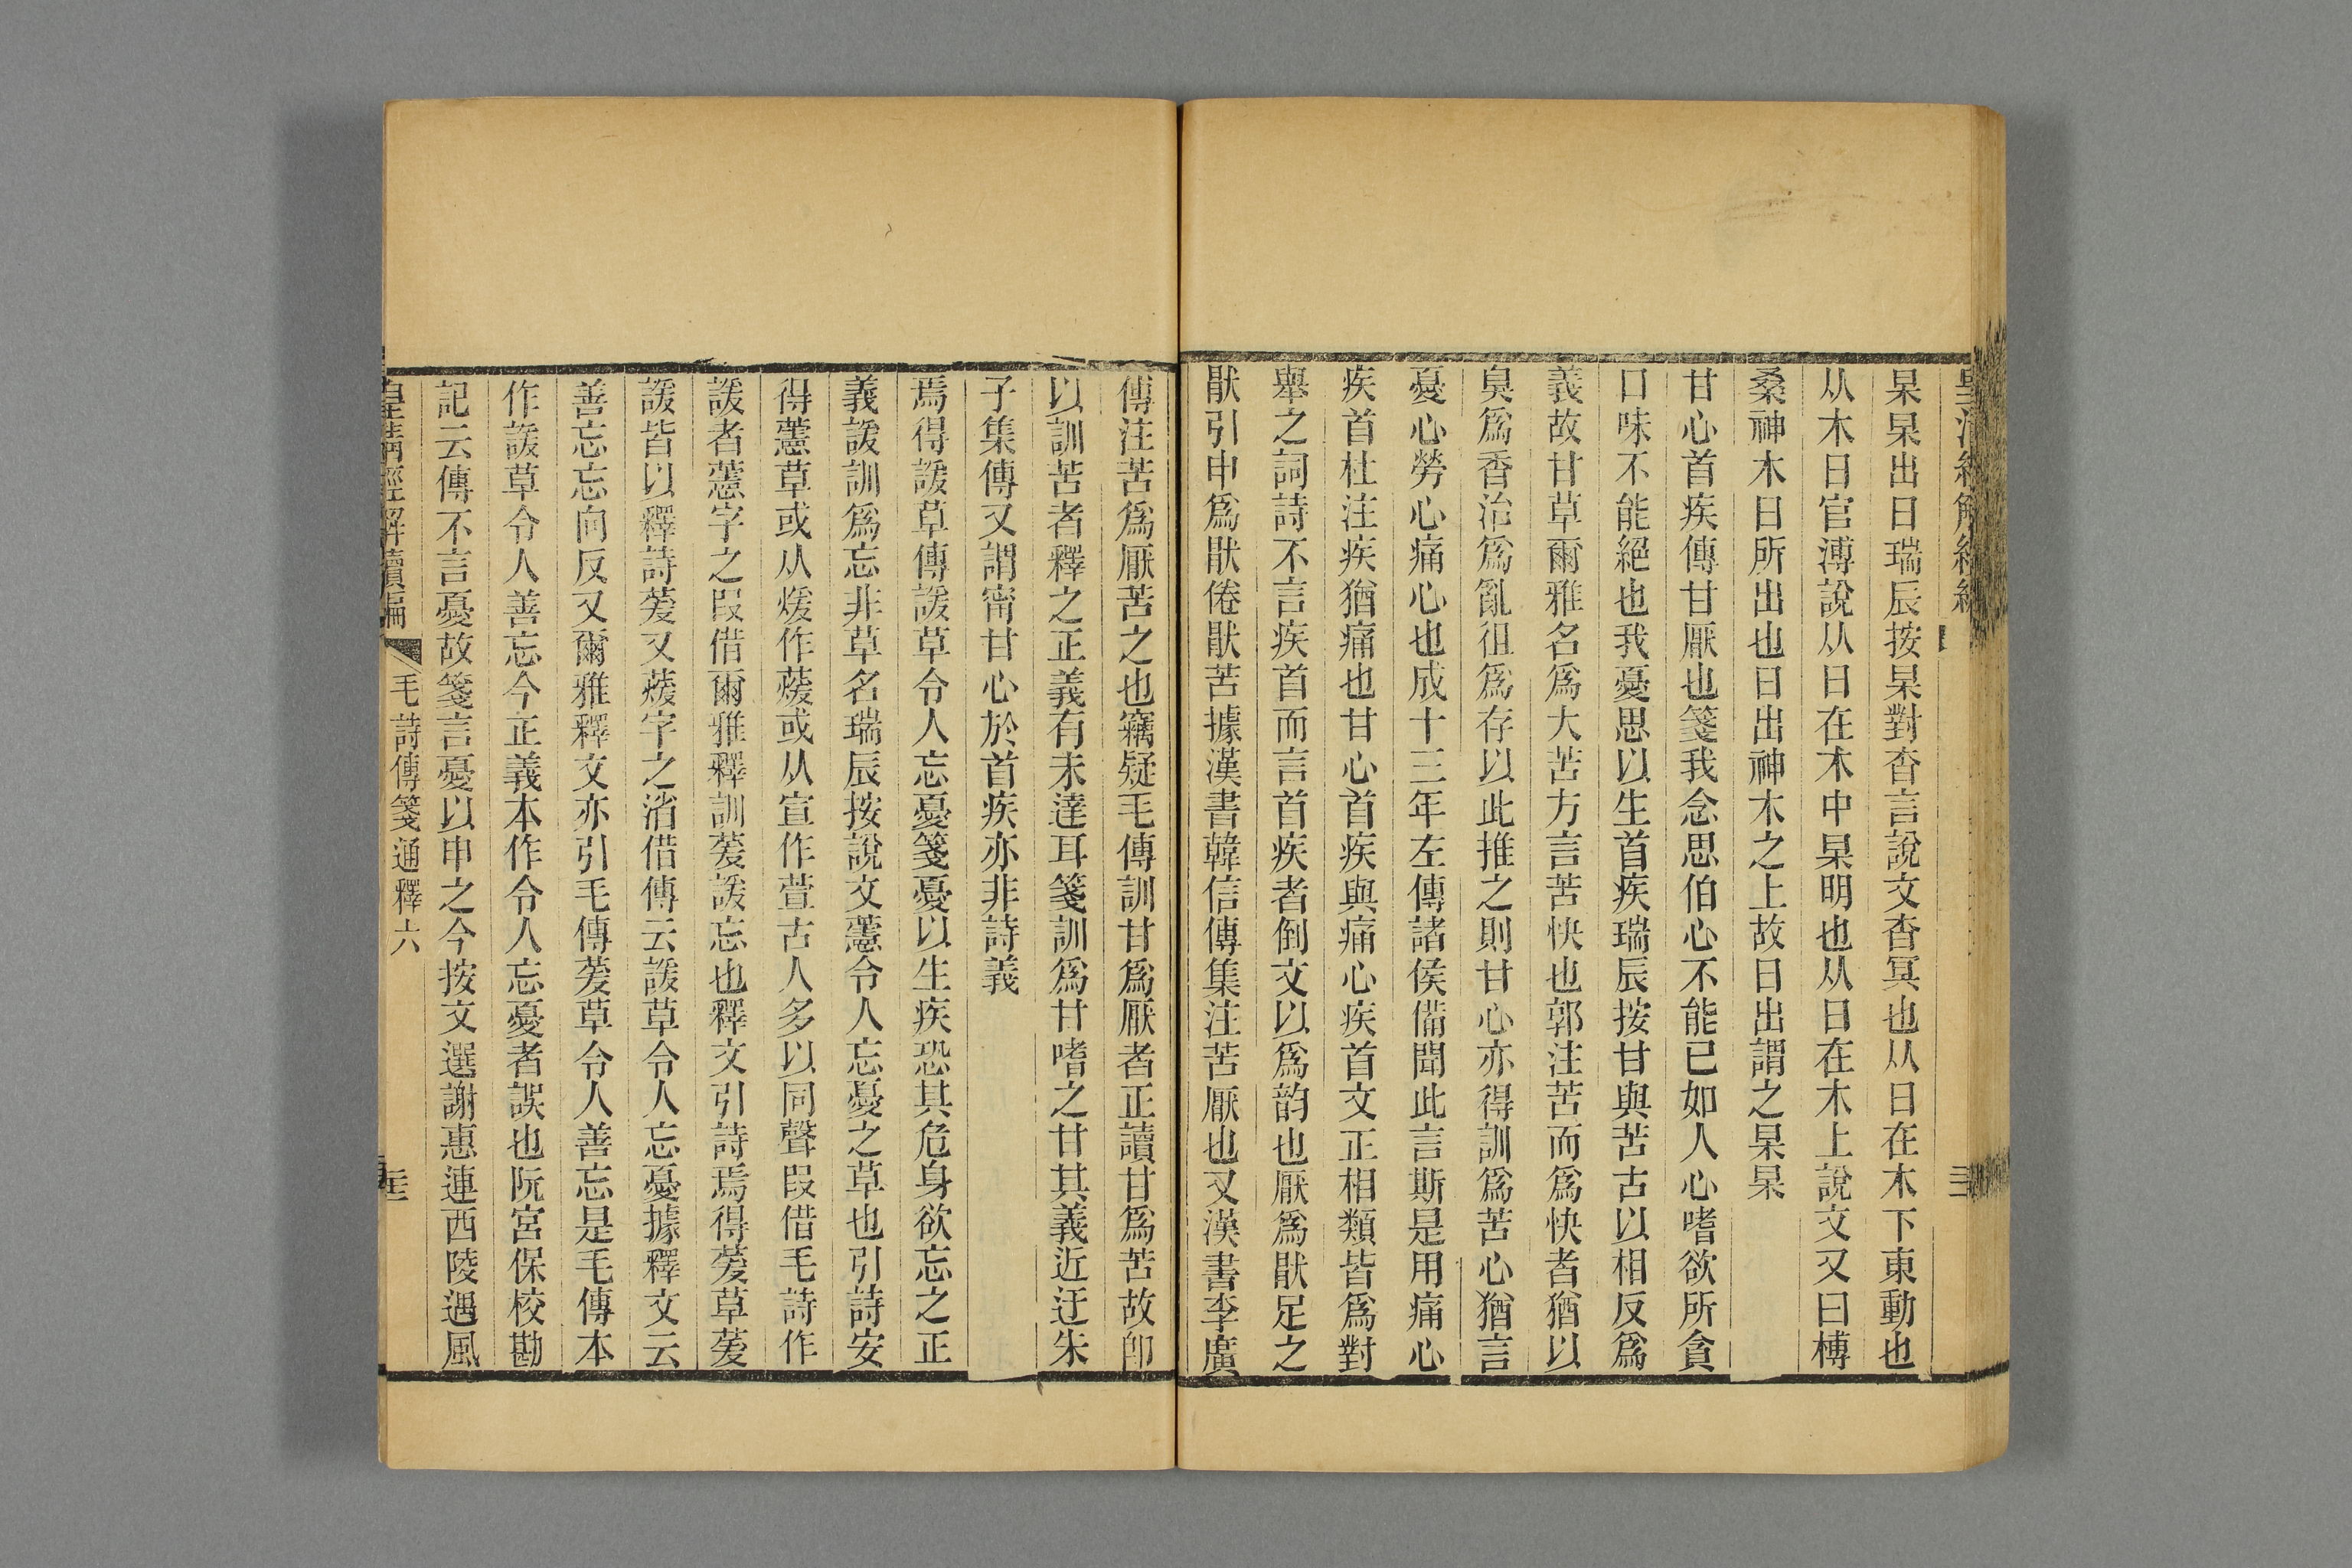 杲杲出日瑞辰按杲對杳言說文杳冥也从日在木下東動也
从木日官溥說从日在木中杲明也从日在木上說文又曰榑
桑神木日所出也日出神木之上故日出謂之杲杲
甘心首疾傳甘厭也箋我念思伯心不能已如人心嗜欲所貪
口味不能絕也我憂思以生首疾瑞辰按甘與苦古以相反爲
義故甘草爾雅名爲大苦方言苦快也郭注苦而爲快者猶以
臭爲香治爲亂徂爲存以此推之則甘心亦得訓爲苦心猶言
憂心勞心痛心也成十三年左傳諸侯備聞此言斯是用痛心
疾首杜注疾猶痛也甘心首疾與痛心疾首文正相類皆爲對
舉之詞詩不言疾首而言首疾者倒文以爲韵也厭爲猒足之
猒引申爲猒倦猒苦據漢書韓信傳集注苦厭也又漢書李廣
傳注苦爲厭苦之也竊疑毛傳訓甘爲厭者正讀甘爲苦故卽
以訓苦者釋之正義有未達耳箋訓爲甘嗜之甘其義近迂朱
子集傳又謂甯甘心於首疾亦非詩義
焉得諼草傳諼草令人忘憂箋憂以生疾恐其危身欲忘之正
義諼訓爲忘非草名瑞辰按說文藼令人忘憂之草也引詩安
得藼草或从煖作蕿或从宣作萱古人多以同聲叚借毛詩作
諼者藼字之叚借爾雅釋訓萲諼忘也釋文引詩焉得萲草萲
諼皆以釋詩萲又蕿字之消借傳云諼草令人忘憂據釋文云
善忘忘向反又爾雅釋文亦引毛傳萲草令人善忘是毛傳本
作諼草令人善忘今正義本作令人忘憂者誤也阮宮保校勘
記云傳不言憂故箋言憂以申之今按文選謝惠連西陵遇風
皇淸經解續編 毛詩傳箋通釋六